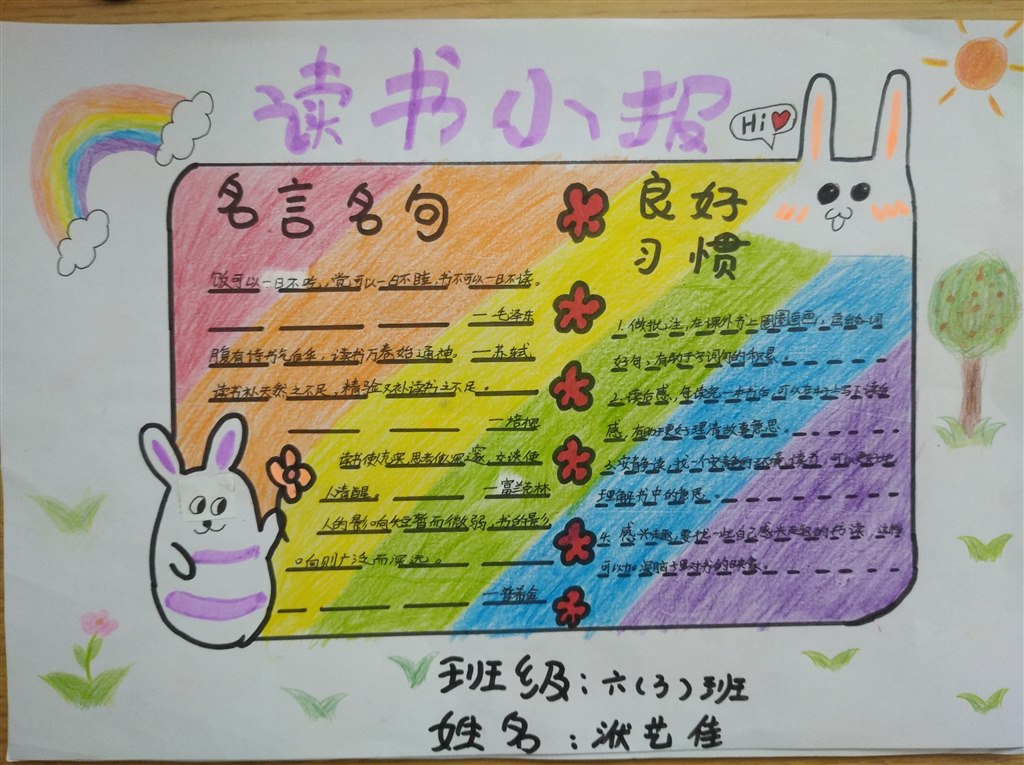 读书小报
Hi
名言名句
饭可以一日不吃，觉可以一日不睡，书不可以一日不读。
—毛泽东
腹有诗书气自华，读书万卷始通神。—苏轼
读书补天然之不足，精验又补读书之不足。
—培根
读书使人深，思考似深邃，交谈使
人清醒。—富兰克林
人的影响短暂而微弱，书的影
响则广泛而深远。
—普希金
良好
习惯
1.做批注，在课外书上圈圈画画，写些词
好句，有助于字词句的积累。
2.读后感，每读完一本书后，可以在纸上写下读后
感，有助于更好理清故事意思。
3.安静读，找一个安静的环境读书，可以更好地
理解书中的意思。
4.感兴趣，要找一些自己感兴趣的书读，这样
可以加深脑子里对书的映象。
班级：六（3）班
姓名：洑艺佳